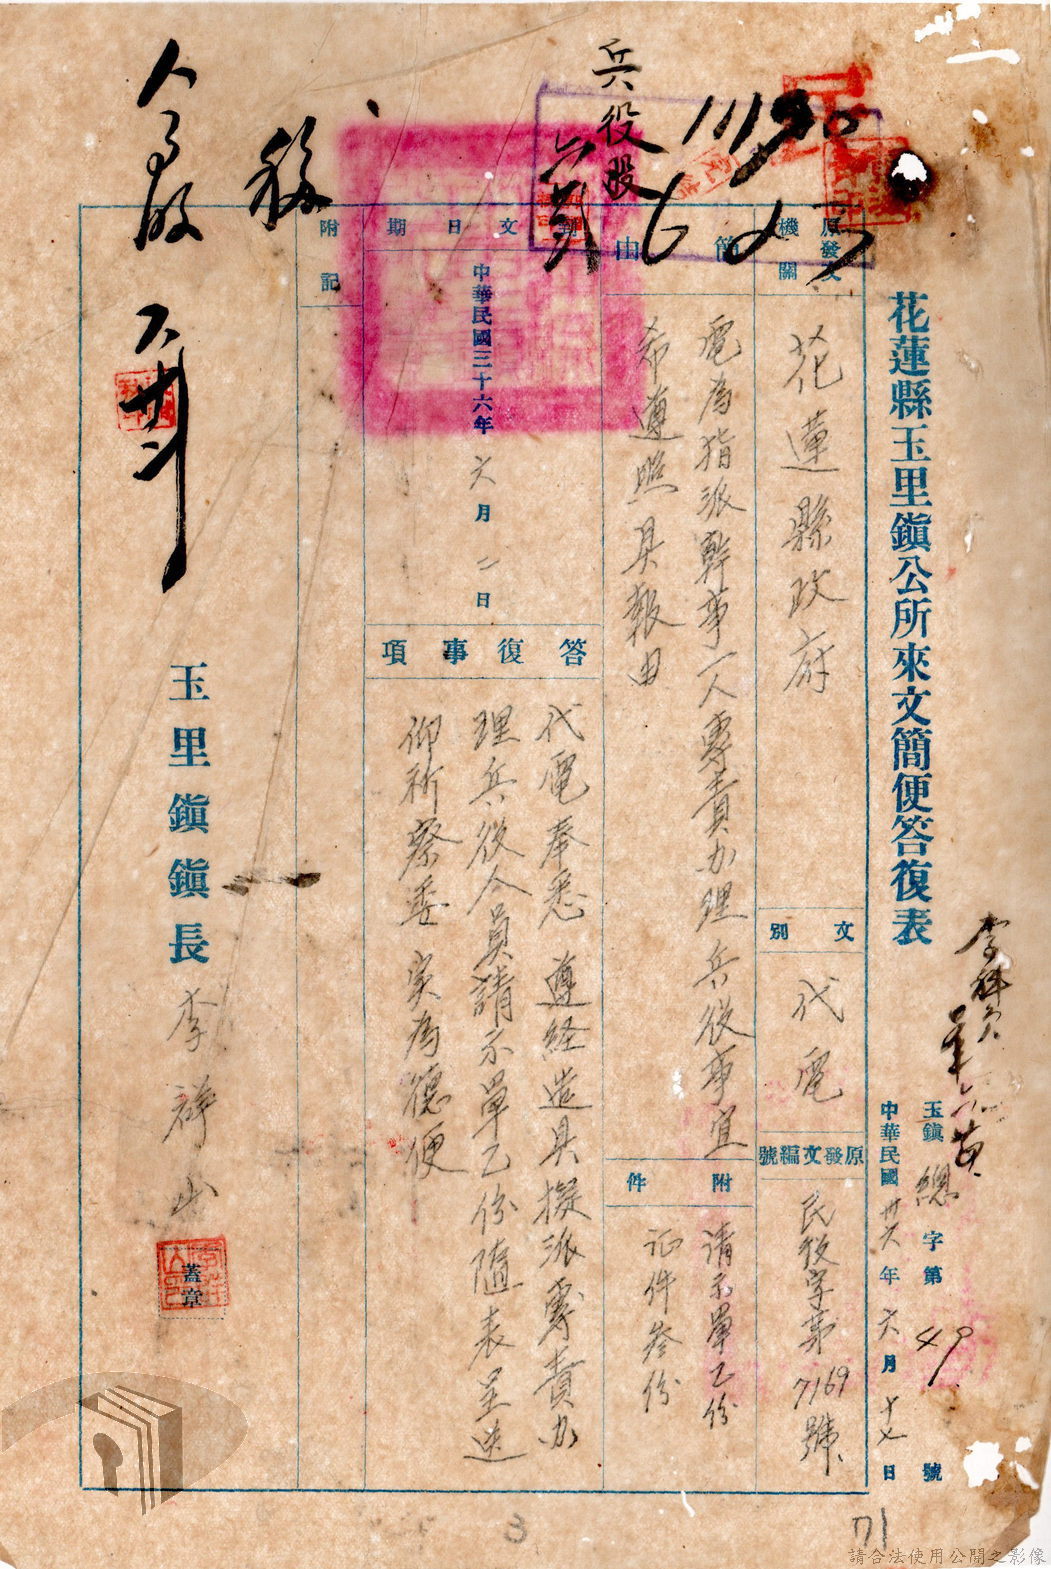 花蓮縣玉里鎮公所來文簡便答復表
玉鎮 總 字第 49 號
中華民國 卅六 年 六 月 十七 日
李科員
兵役股
11190
原發文機關
花蓮縣政府
文別
代電
原發文編號
民役字第7169號
簡由
電為指派幹事一人專責办理兵役事宜
希遵照具報由
附件
請示單乙份
証件叁份
到文日期
中華民國三十六年 六 月 二 日
答復事項
代電奉悉 遵経造具擬派專責办
理兵役人員請示單乙份隨表呈送
仰祈察委 実為德便
附記
移
玉里鎮鎮長 李祥山
蓋章
人
3
71
請合法使用公開之影像